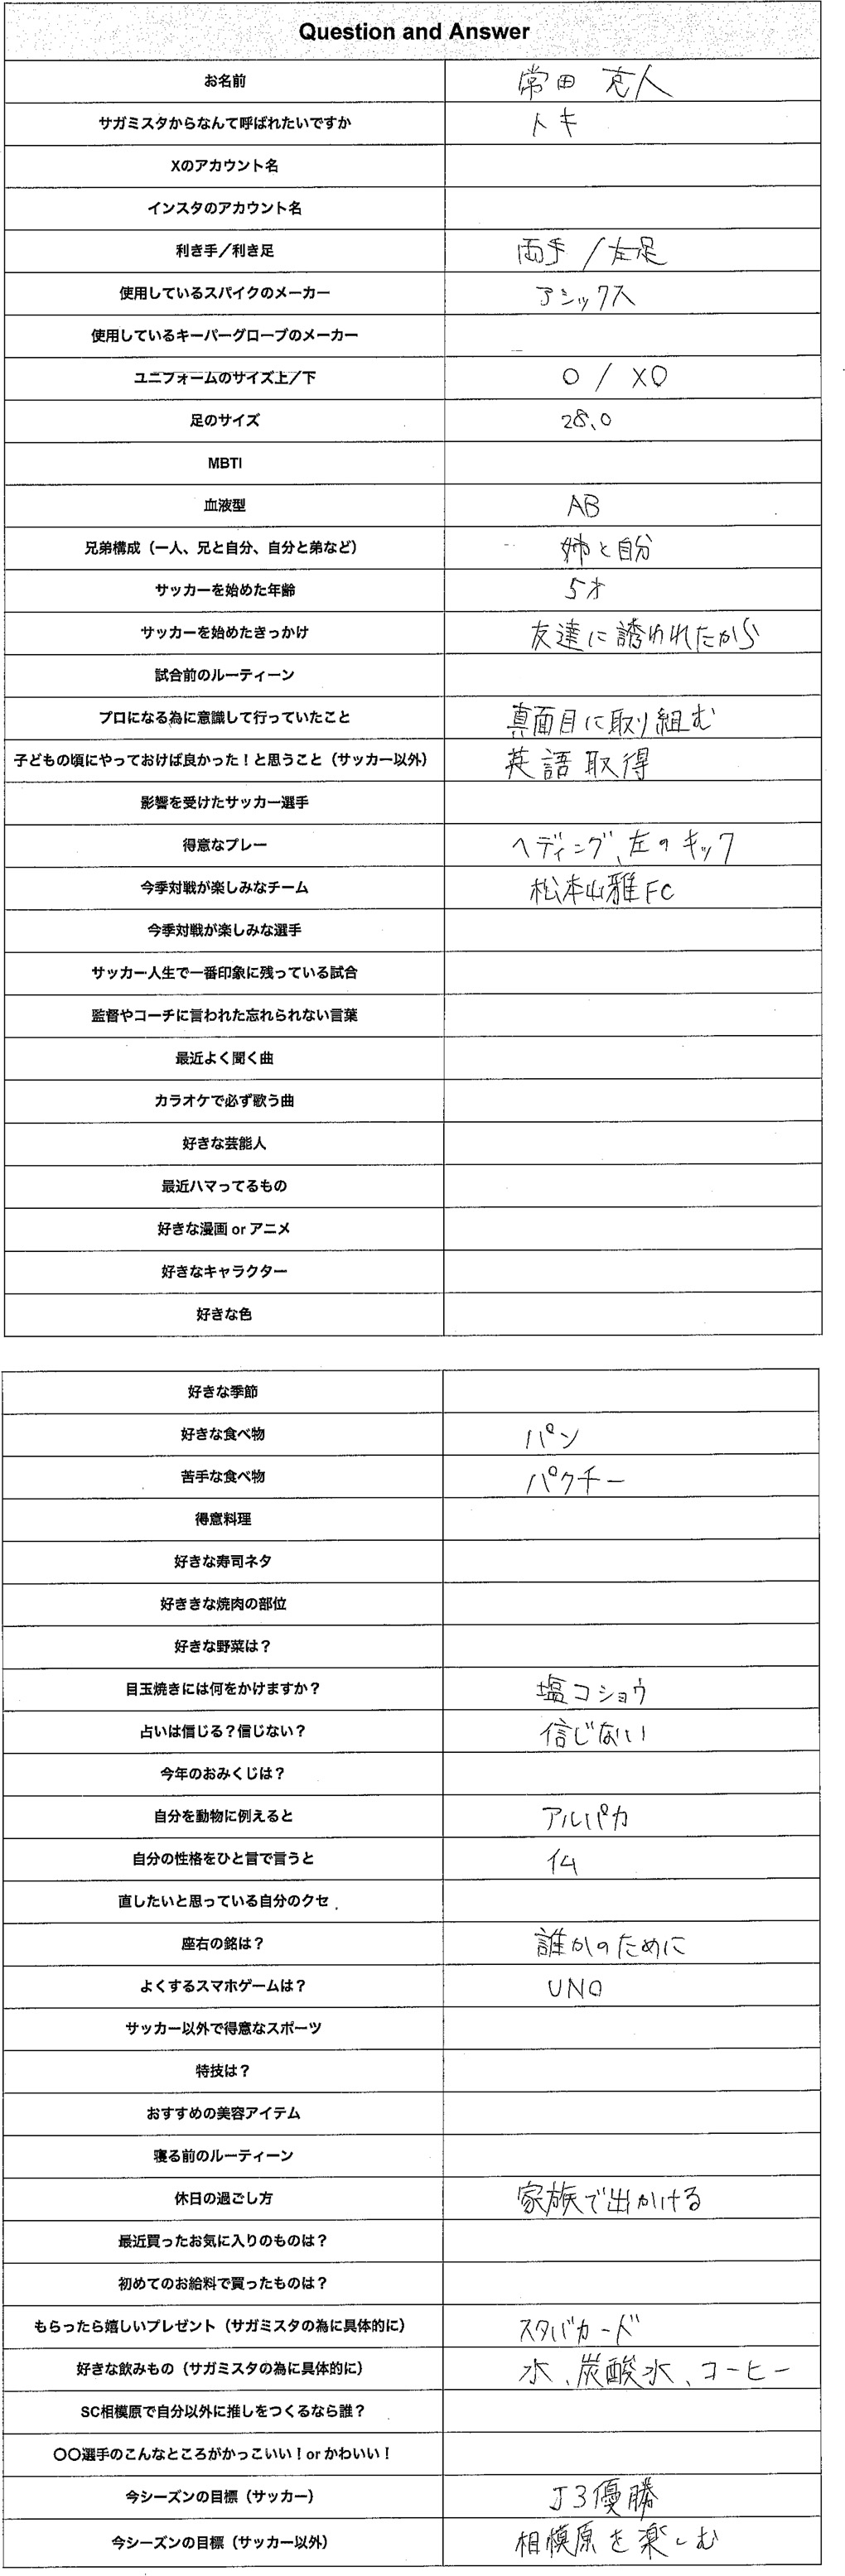 Question and Answer
お名前 常田 克人
サガミスタからなんて呼ばれたいですか トキ
Xのアカウント名
インスタのアカウント名
利き手/利き足 両手/左足
使用しているスパイクのメーカー アシックス
使用しているキーパーグローブのメーカー
ユニフォームのサイズ上/下 O / XO
足のサイズ 28.0
MBTI
血液型 AB
兄弟構成（一人、兄と自分、自分と弟など） 姉と自分
サッカーを始めた年齢 5才
サッカーを始めたきっかけ 友達に誘われたから
試合前のルーティーン
プロになる為に意識して行っていたこと 真面目に取り組む
子どもの頃にやっておけば良かった！と思うこと（サッカー以外） 英語取得
影響を受けたサッカー選手
得意なプレー ヘディング、左のキック
今季対戦が楽しみなチーム 松本山雅FC
今季対戦が楽しみな選手
サッカー人生で一番印象に残っている試合
監督やコーチに言われた忘れられない言葉
最近よく聞く曲
カラオケで必ず歌う曲
好きな芸能人
最近ハマってるもの
好きな漫画 or アニメ
好きなキャラクター
好きな色
好きな季節
好きな食べ物 パン
苦手な食べ物 パクチー
得意料理
好きな寿司ネタ
好ききな焼肉の部位
好きな野菜は？
目玉焼きには何をかけますか？ 塩コショウ
占いは信じる？信じない？ 信じない
今年のおみくじは？
自分を動物に例えると アルパカ
自分の性格をひと言で言うと 仏
直したいと思っている自分のクセ
座右の銘は？ 誰かのために
よくするスマホゲームは？ UNO
サッカー以外で得意なスポーツ
特技は？
おすすめの美容アイテム
寝る前のルーティーン
休日の過ごし方 家族で出かける
最近買ったお気に入りのものは？
初めてのお給料で買ったものは？
もらったら嬉しいプレゼント（サガミスタの為に具体的に） スタバカード
好きな飲みもの（サガミスタの為に具体的に） 水、炭酸水、コーヒー
SC相模原で自分以外に推しをつくるなら誰？
〇〇選手のこんなところがかっこいい！or かわいい！
今シーズンの目標（サッカー） J3優勝
今シーズンの目標（サッカー以外） 相模原を楽しむ